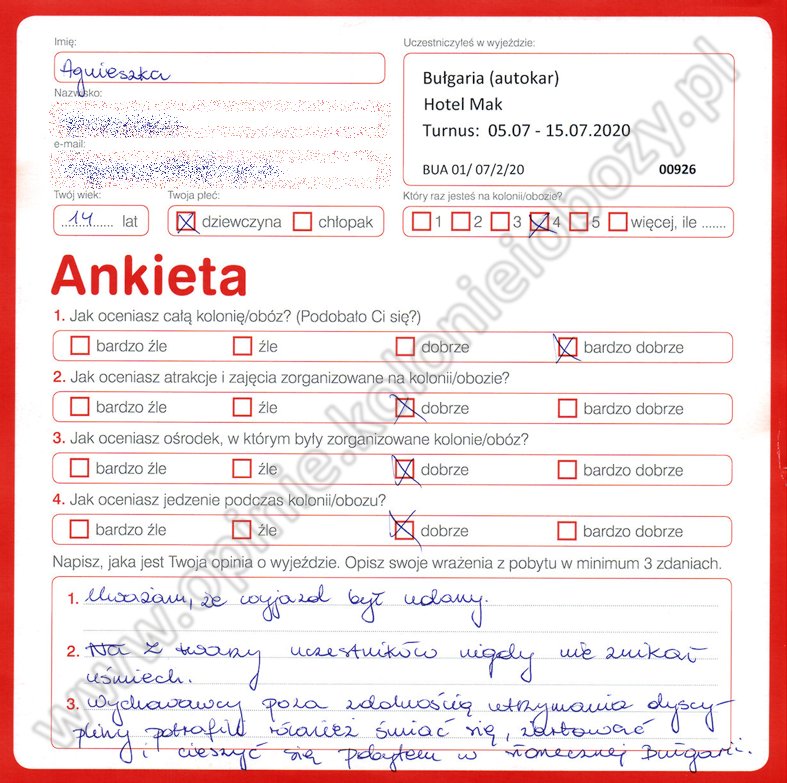 Imię:
Agnieszka
Uczestniczyłeś w wyjeździe:
Bułgaria (autokar)
Hotel Mak
Turnus: 05.07 - 15.07.2020
BUA 01/ 07/2/20 00926
Nazwisko:
e-mail:
Twój wiek:
14 lat
Twoja płeć:
dziewczyna chłopak
Który raz jesteś na kolonii/obozie?
1 2 3 4 5 więcej, ile .......
Ankieta
1. Jak oceniasz całą kolonię/obóz? (Podobało Ci się?)
bardzo źle źle dobrze bardzo dobrze
2. Jak oceniasz atrakcje i zajęcia zorganizowane na kolonii/obozie?
bardzo źle źle dobrze bardzo dobrze
3. Jak oceniasz ośrodek, w którym były zorganizowane kolonie/obóz?
bardzo źle źle dobrze bardzo dobrze
4. Jak oceniasz jedzenie podczas kolonii/obozu?
bardzo źle źle dobrze bardzo dobrze
Napisz, jaka jest Twoja opinia o wyjeździe. Opisz swoje wrażenia z pobytu w minimum 3 zdaniach.
1. Uważam, że wyjazd był udany.
2. Na z twarzy uczestników nigdy nie znikał
uśmiech.
3. Wychowawcy poza zdolnością utrzymania dyscy-
pliny potrafili również śmiać się, żartować
i cieszyć się pobytem w słonecznej Bułgarii.
www.opinie.kolonieiobozy.pl